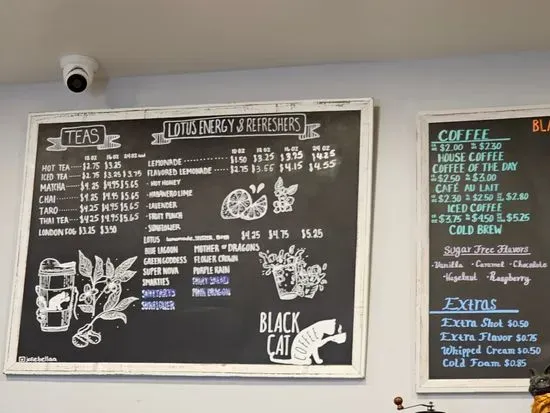 TEAS
12 OZ 16 OZ 24 OZ
HOT TEA $2.75 $3.25
ICED TEA $2.75 $3.25 $3.75
MATCHA $4.25 $4.95 $5.65
CHAI $4.25 $4.95 $5.65
TARO $4.25 $4.95 $5.65
THAI TEA $4.25 $4.95 $5.65
LONDON FOG $3.25 $3.50
josebellan
LOTUS ENERGY & REFRESHERS
12 OZ 16 OZ 24 OZ
LEMONADE $1.50 $3.25 $3.75 $4.25
FLAVORED LEMONADE $2.75 $3.65 $4.15 $4.55
• HOT HONEY
• HABANERO LIME
• LAVENDER
• FRUIT PUNCH
• SUNFLOWER
LOTUS $4.25 $4.75 $5.25
BLUE LAGOON MOTHER OF DRAGONS
GREEN GODDESS FLOWER CROWN
SUPER NOVA PURPLE RAIN
SMARTIES
SWEETARTS PINK DRAGON
SUNFLOWER
BLACK
CAT
COFFEE
BLA
COFFEE
$2.00 $2.30
HOUSE COFFEE
COFFEE OF THE DAY
$2.50 $3.00
CAFÉ AU LAIT
$2.30 $2.50 $2.80
ICED COFFEE
$3.75 $4.50 $5.25
COLD BREW
Sugar Free Flavors
• Vanilla • Caramel • Chocolate
• Hazelnut • Raspberry
Extras
Extra Shot $0.50
Extra Flavor $0.75
Whipped Cream $0.50
Cold Foam $0.85